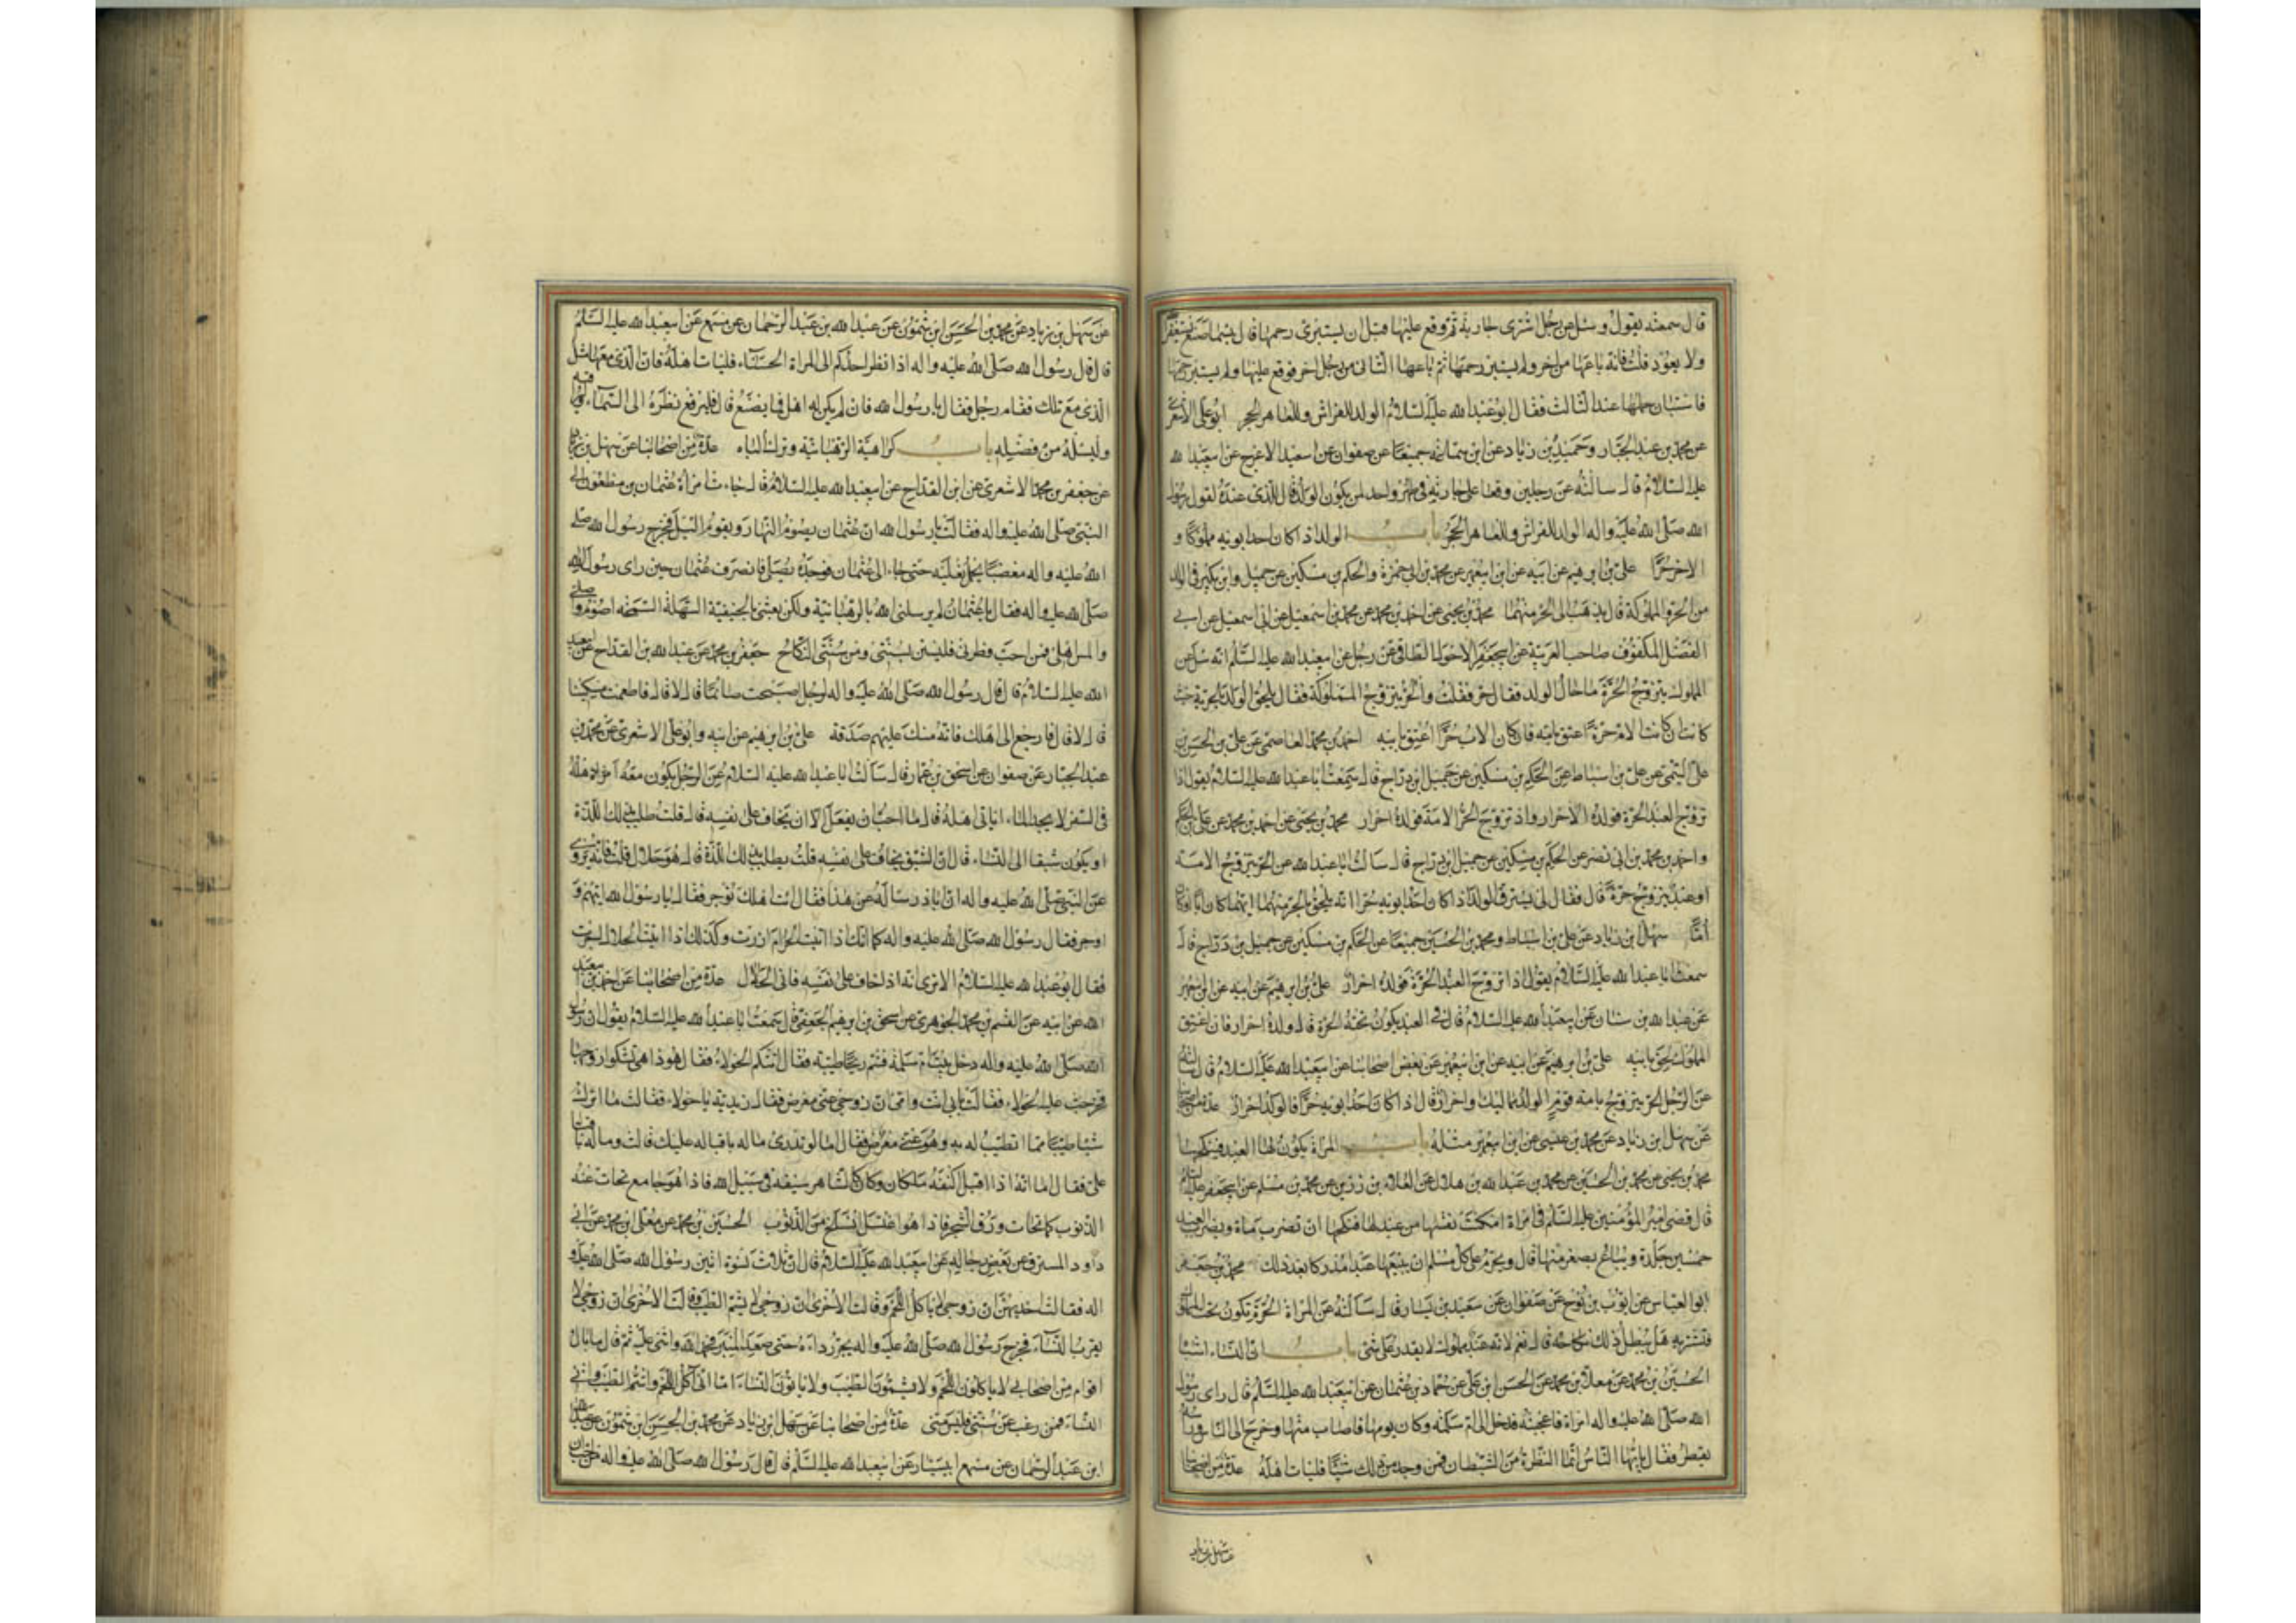 قال سمعته يقول وسئل عن رجل اشترى جارية ثم وقع عليها قبل ان يستبرئ رحمها قال بئسما صنع يستغفر
ولا يعود قلت فانه باعها من اخر ولم يستبرئ رحمها ثم باعها الثاني من رجل اخر فوقع عليها ولم يستبرئ رحمها
فاستبان حملها عند الثالث فقال ابو عبد الله عليه السلام الولد للفراش وللعاهر الحجر ابو علي الاشعري
عن محمد بن عبد الجبار وحميد بن زياد عن ابن سماعة جميعا عن صفوان عن سعيد الاعرج عن ابي عبد الله
عليه السلام قال سالته عن رجلين وقعا على جارية في طهر واحد لمن يكون الولد قال للذي عنده لقول رسول
الله صلى الله عليه واله الولد للفراش وللعاهر الحجر باب الولد اذا كان احد ابويه مملوكا و
الاخر حرا علي بن ابرهيم عن ابيه عن ابن ابي عمير عن محمد بن ابي حمزة والحكم بن مسكين عن جميل وابن بكير في الولد
من الحر والمملوكة قال يذهب الى الحر منهما محمد بن يحيى عن احمد بن محمد عن محمد بن اسمعيل عن ابي اسمعيل عن ابي
الفضل المكفوف صاحب العربية عن ابي جعفر الاحول الطاقي عن رجل عن ابي عبد الله عليه السلام انه سئل عن
المملوك يتزوج الحرة ما حال الولد فقال حر فقلت والحر يتزوج المملوكة فقال يلحق الولد بالحرية حيث
كانت ان كانت الام حرة اعتق بامه وان كان الاب حرا اعتق بابيه احمد بن محمد العاصمي عن علي بن الحسن بن
علي التيمي عن علي بن اسباط عن الحكم بن مسكين عن جميل بن دراج قال سمعت ابا عبد الله عليه السلام يقول اذا
تزوج العبد الحرة فولده الاحرار واذ تزوج الحر الامة فولده احرار محمد بن يحيى عن احمد بن محمد عن علي بن الحكم
واحمد بن محمد بن ابي نصر عن الحكم بن مسكين عن جميل بن دراج قال سالت ابا عبد الله عن الحر يتزوج الامة
او عبد يتزوج حرة قال فقال لي ليس يسترق الولد اذا كان احد ابويه حرا انه يلحق بالحر منهما ايهما كان ابا او كان
اما سهل بن زياد عن علي بن اسباط ومحمد بن الحسين جميعا عن الحكم بن مسكين عن جميل بن دراج قال
سمعت ابا عبد الله عليه السلام يقول اذا تزوج العبد الحرة فولده احرار علي بن ابرهيم عن ابيه عن ابن ابي عمير
عن عبد الله بن سنان عن ابي عبد الله عليه السلام قال في العبد يكون تحته الحرة قال ولده احرار فان اعتق
المملوك لحق بابيه علي بن ابرهيم عن ابيه عن ابن ابي عمير عن بعض اصحابنا عن ابي عبد الله عليه السلام قال سالته
عن الرجل الحر يتزوج بامة قوم الولد مماليك او احرار قال اذا كان احد ابويه حرا فالولد احرار عدة من اصحابنا
عن سهل بن زياد عن محمد بن عيسى عن ابن ابي عمير مثله باب المراة يكون لها العبد فينكحها
محمد بن يحيى عن محمد بن الحسين عن محمد بن عبد الله بن هلال عن العلاء بن رزين عن محمد بن مسلم عن ابي جعفر عليه السلام
قال قضى امير المؤمنين عليه السلام في امراة امكنت نفسها من عبد لها فنكحها ان تضرب ماة ويضرب العبد
خمسين جلدة ويباع بصغر منها قال ويحرم على كل مسلم ان يبيعها عبدا مدركا بعد ذلك محمد بن جعفر
ابو العباس عن ايوب بن نوح عن صفوان عن سعيد بن يسار قال سالته عن المراة الحرة تكون تحت المملوك
فتشتريه هل يبطل ذلك نكاحه قال نعم لانه عبد مملوك لا يقدر على شئ باب ان النساء اشباه
الحسين بن محمد عن معلى بن محمد عن الحسن بن علي عن حماد بن عثمان عن ابي عبد الله عليه السلام قال راى رسول
الله صلى الله عليه واله امراة فاعجبته فدخل الى ام سلمة وكان يومها فاصاب منها وخرج الى الناس وراسه
يقطر فقال يا ايها الناس انما النظرة من الشيطان فمن وجد من ذلك شيئا فليات اهله عدة من اصحابنا
عن سهل بن زياد
عن سهل بن زياد عن محمد بن الحسن ابن شمون عن عبد الله بن عبد الرحمان عن مسمع عن ابي عبد الله عليه السلام
قال قال رسول الله صلى الله عليه واله اذا نظر احدكم الى المراة الحسناء فليات اهله فان الذي معها مثل
الذي مع تلك فقام رجل فقال يا رسول الله فان لم يكن له اهل فما يصنع قال فليرفع نظره الى السماء وليراقبه
وليسئله من فضله باب كراهية الرهبانية وترك الباه عدة من اصحابنا عن سهل بن زياد
عن جعفر بن محمد الاشعري عن ابن القداح عن ابي عبد الله عليه السلام قال جاءت امراة عثمان بن مظعون الى
النبي صلى الله عليه واله فقالت يا رسول الله ان عثمان يصوم النهار ويقوم الليل فخرج رسول الله صلى
الله عليه واله مغضبا يحمل نعليه حتى جاء الى عثمان فوجده يصلي فانصرف عثمان حين راى رسول الله
صلى الله عليه واله فقال يا عثمان لم يرسلني الله بالرهبانية ولكن بعثني بالحنيفية السهلة السمحة اصوم واصلي
والمس اهلي فمن احب فطرتي فليستن بسنتي ومن سنتي النكاح جعفر بن محمد عن عبد الله بن القداح عن ابي عبد
الله عليه السلام قال قال رسول الله صلى الله عليه واله لرجل اصبحت صائما قال لا قال فاطعمت مسكينا
قال لا قال فارجع الى اهلك فانه منك عليهم صدقة علي بن ابرهيم عن ابيه وابو علي الاشعري عن محمد بن
عبد الجبار عن صفوان عن اسحق بن عمار قال سالت ابا عبد الله عليه السلام عن الرجل يكون معه اهله
في السفر لا يجد الماء اياتي اهله قال ما احب ان يفعل الا ان يخاف على نفسه قال قلت طلب بذلك اللذة
او يكون شبقا الى النساء قال ان الشبق يخاف على نفسه قلت يطلب بذلك اللذة قال هو حلال قلت فانه يروى
عن النبي صلى الله عليه واله ان ابا ذر ساله عن هذا فقال ائت اهلك تؤجر فقال يا رسول الله اتيهم و
اوجر فقال رسول الله صلى الله عليه واله كما انك اذا اتيت الحرام ازرت وكذلك اذا اتيت الحلال اجرت
فقال ابو عبد الله عليه السلام الا ترى انه اذا خاف على نفسه فاتى الحلال عدة من اصحابنا عن احمد بن ابي عبد
الله عن ابيه عن القسم بن محمد الجوهري عن اسحق بن ابرهيم الجعفي قال سمعت ابا عبد الله عليه السلام يقول ان رسول
الله صلى الله عليه واله دخل بيت ام سلمة فشم ريحا طيبة فقال اتتكم الحولاء فقال هو ذا هي تشكو زوجها
فخرجت عليه الحولاء فقالت بابي انت وامي ان زوجي عني معرض فقال زيديه يا حولاء فقالت ما اترك
شيئا طيبا مما اتطيب له به وهو عني معرض فقال اما لو تدري ما له باقباله عليك قالت وما له باقباله
علي فقال اما انه اذا اقبل اكتنفه ملكان وكان كالشاهر سيفه في سبيل الله فاذا هو جامع تحات عنه
الذنوب كما تحات ورق الشجر فاذا هو اغتسل انسلخ من الذنوب الحسين بن محمد عن معلى بن محمد عن ابي
داود المسترق عن بعض رجاله عن ابي عبد الله عليه السلام قال ان ثلاث نسوة اتين رسول الله صلى الله عليه و
اله فقالت احديهن ان زوجي لا ياكل اللحم وقالت الاخرى ان زوجي لا يشم الطيب وقالت الاخرى ان زوجي لا
يقرب النساء فخرج رسول الله صلى الله عليه واله يجر رداءه حتى صعد المنبر فحمد الله واثنى عليه ثم قال ما بال
اقوام من اصحابي لا ياكلون اللحم ولا يشمون الطيب ولا ياتون النساء اما اني اكل اللحم واشم الطيب واتي
النساء فمن رغب عن سنتي فليس مني عدة من اصحابنا عن سهل بن زياد عن محمد بن الحسن ابن شمون عن عبد الله
ابن عبد الرحمان عن مسمع ابي سيار عن ابي عبد الله عليه السلام قال قال رسول الله صلى الله عليه واله من احب ان